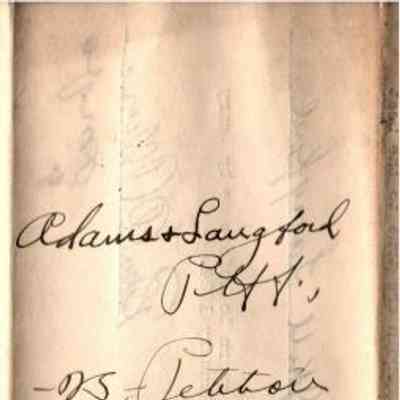 Adams & Langford
Pltfs.,
-vs- Petition